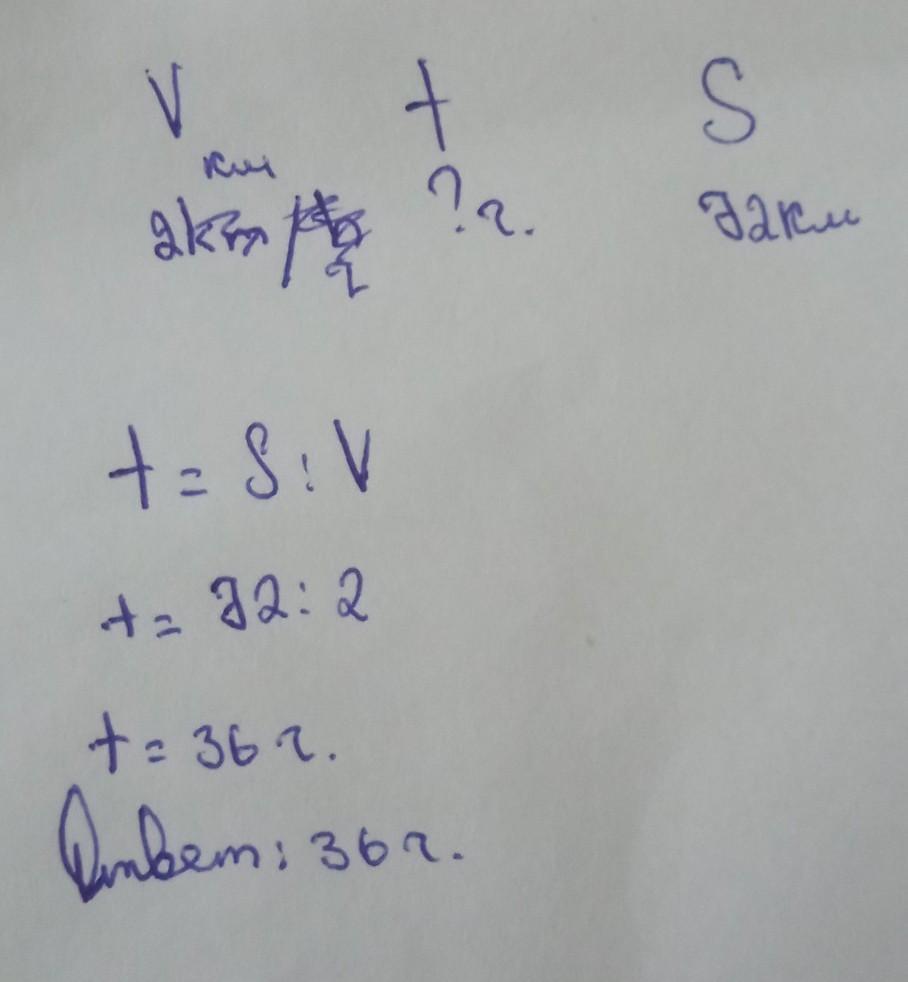 V t S
км
2km/ч ? ч. 72км
t = S : V
t = 72 : 2
t = 36 ч.
Ответ : 36 ч.